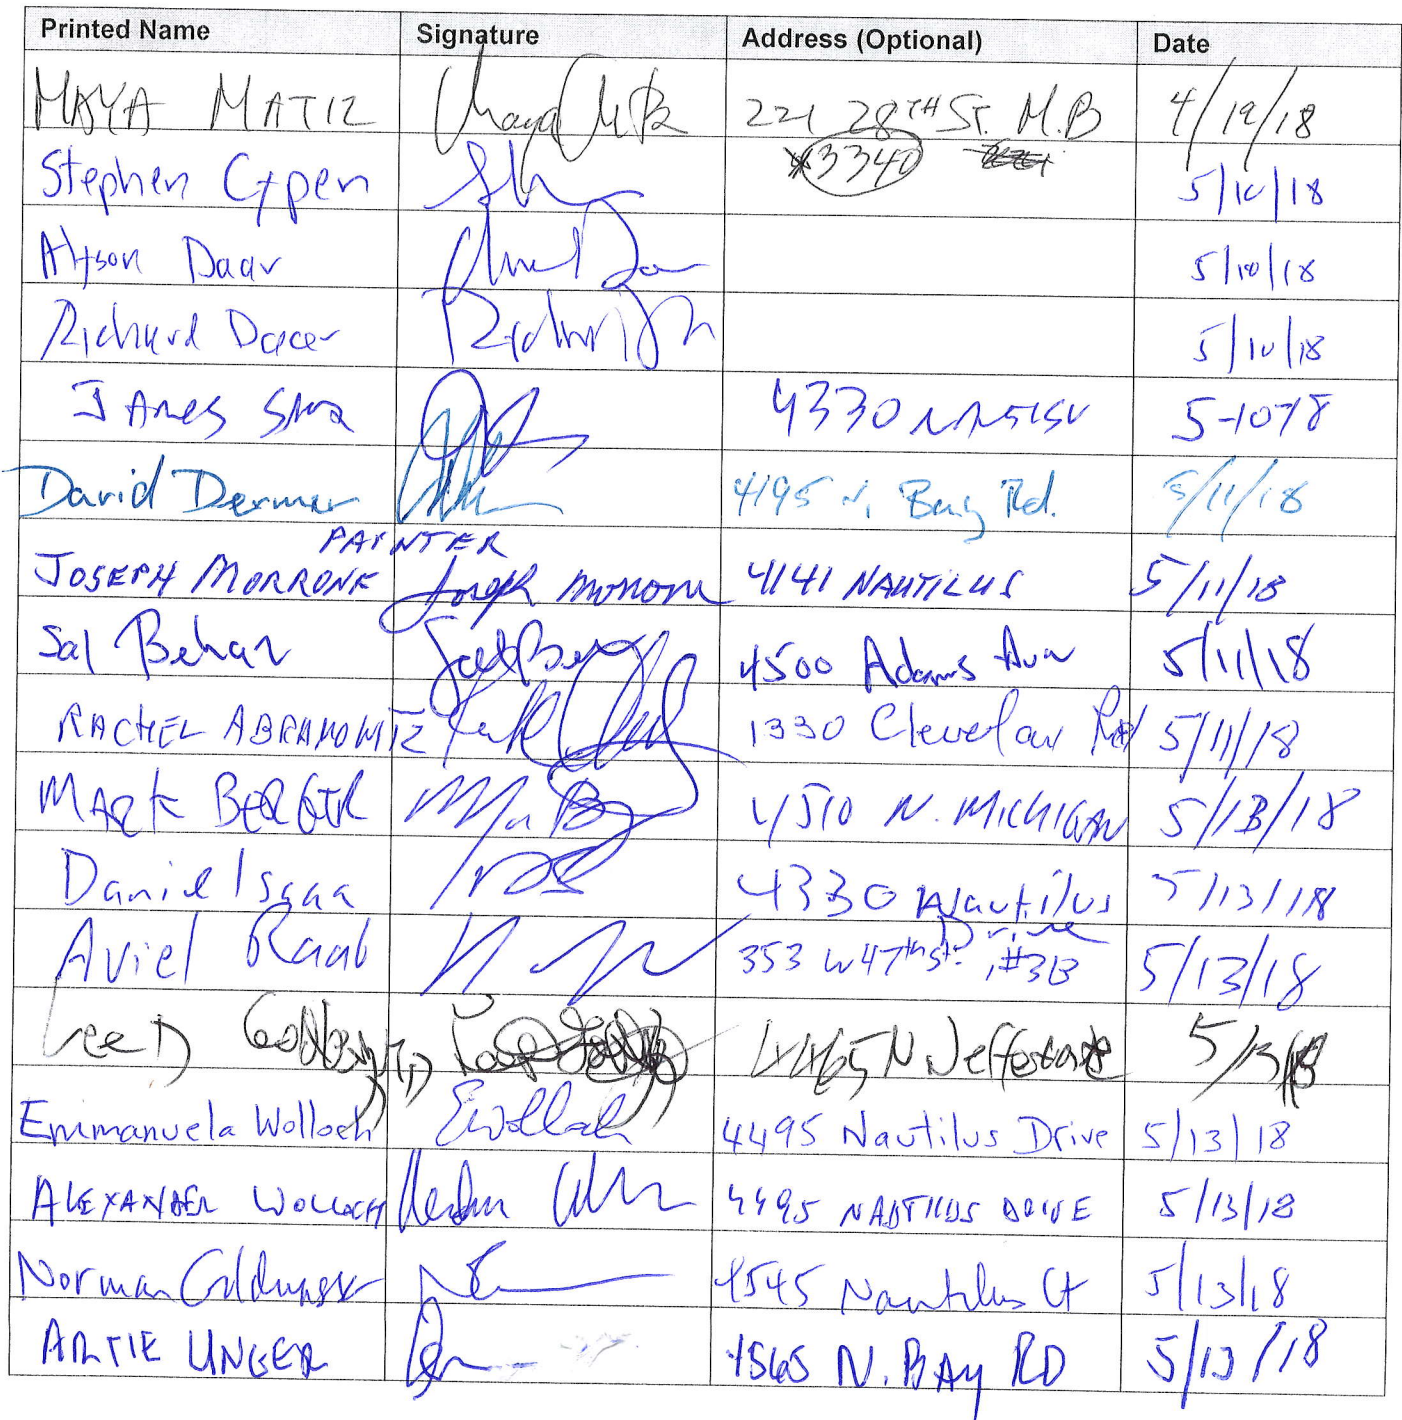 Printed Name Signature Address (Optional) Date
MAYA MATIZ 221 28TH ST. M.B 4/19/18
Stephen Cypen 33140 5/10/18
Alyson Daar 5/10/18
Richard 5/10/18
JAMES 4330 5-10-18
David Dermer 4195 N. Bay Rd. 5/11/18
PAINTER
JOSEPH MORRONE Joseph Morrone 4141 NAUTILUS 5/11/18
Sal Behar 4500 Adams Ave 5/11/18
RACHEL ABRAMOWITZ 1330 Cleveland Rd 5/11/18
MARK BERGER 4510 N. MICHIGAN 5/13/18
Daniel Isaa 4330 Nautilus 5/13/18
Drive
Aviel Raab 353 W 47th St. #3B 5/13/18
4465 N Jefferson 5/13/18
Emmanuela Wolloch EWolloch 4495 Nautilus Drive 5/13/18
ALEXANDER WOLLOCH 4495 NAUTILUS DRIVE 5/13/18
Norman 4545 Nautilus Ct 5/13/18
ARTIE UNGER 4565 N. BAY RD 5/13/18